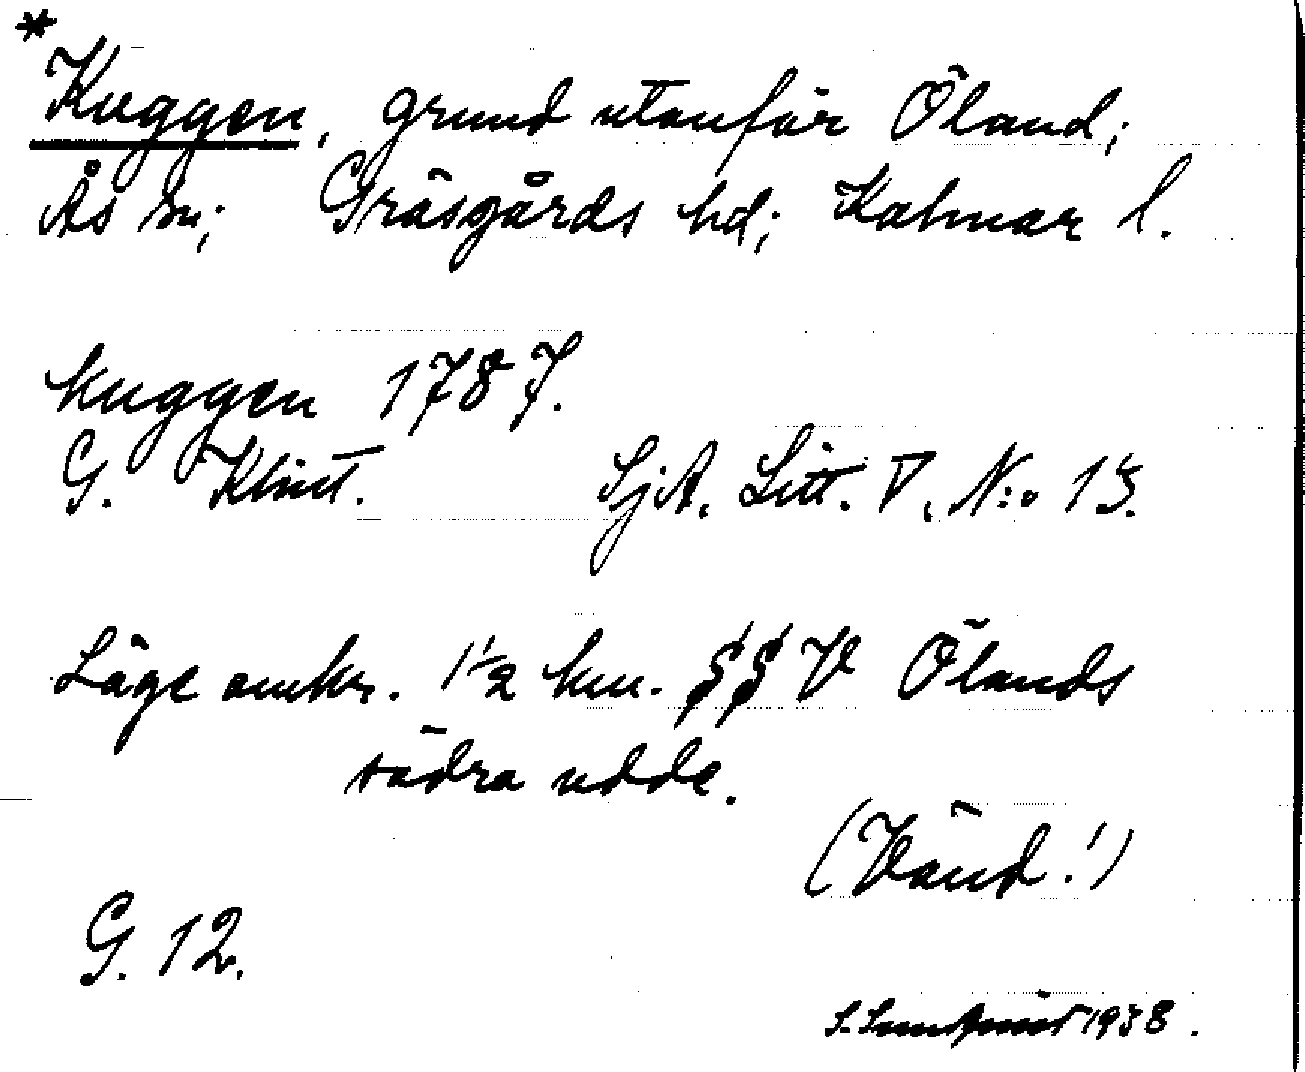 *
Kuggen, grund utanför Öland;
Ås sn; Gräsgårds hd; Kalmar l.
kuggen 1787.
G. Klint. SjA. Litt. V. N:o 15.
Läge omkr. 1½ km. SSV Ölands
södra udde.
(Vänd!)
G. 12.
S. 1938.